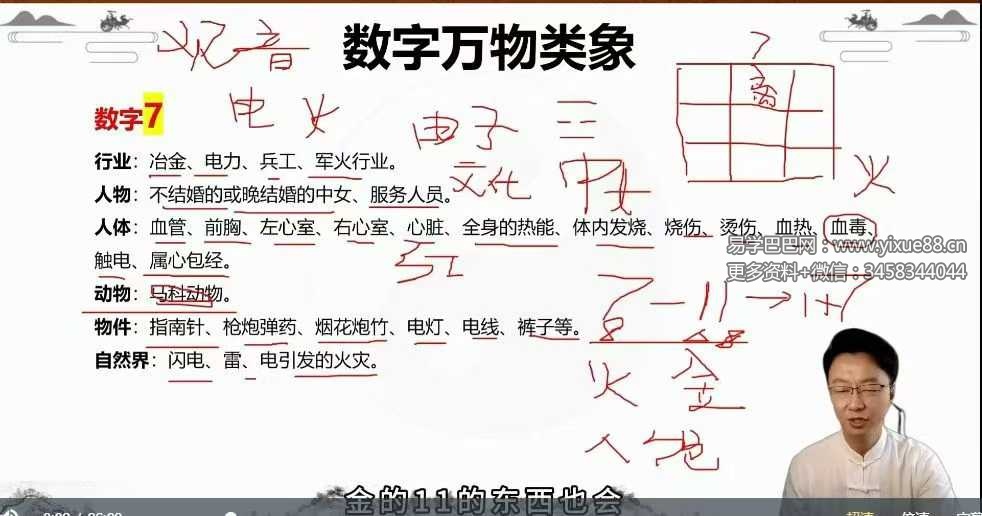 数字万物类象
观音
7
离
数字7
电 火
电子
三
文化
中女
火
行业：冶金、电力、兵工、军火行业。
人物：不结婚的或晚结婚的中女、服务人员。
人体：血管、前胸、左心室、右心室、心脏、全身的热能、体内发烧、烧伤、烫伤、血热、血毒、
触电、属心包经。
红
易学巴巴网：www.yixue88.cn
更多资料+微信：3458344044
动物：马科动物。
7-11→1+7
物件：指南针、枪炮弹药、烟花炮竹、电灯、电线、裤子等。
自然界：闪电、雷、电引发的火灾。
火 金
金的11的东西也会
超清 倍速